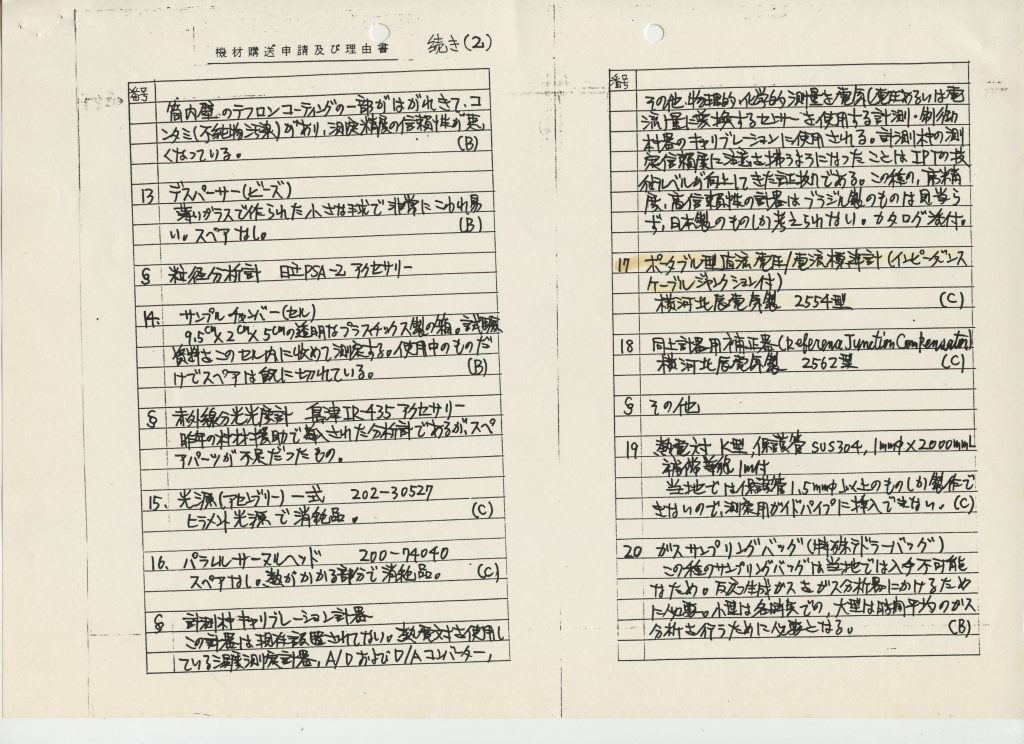 機材購送申請及び理由書 続き(2)
番号
管内壁のテフロンコーティングの一部がはがれきて、コ
ンタミ(不純物汚染)があり、測定精度の信頼性が悪
くなっている。 (B)
13 デスパーサー(ビーズ)
薄いガラスで作られた小さな球で非常にこわれ易
い。スペアなし。 (B)
§ 粒径分析計 日立PSA-2 アクセサリー
14. サンプルチャンバー(セル)
9.5cm×2cm×5cmの透明なプラスチックス製の箱。試験
資料をこのセル内に収めて測定する。使用中のものだ
けでスペアは既に切れている。 (B)
§ 赤外線分光光度計 島津IR-435 アクセサリー
昨年の機材援助で導入された分析計であるが、スペ
アパーツが不足だったもの。
15. 光源(アセンブリー)一式 202-30527
ヒラメント光源で消耗品。 (C)
16. パラレルサーマルヘッド 200-74040
スペアなし。数がかかる部分で消耗品。 (C)
§ 計測機キャリブレーション計器
この計器は現在設置されてない。熱電対を使用し
ている温度測定計器、A/DおよびD/Aコンバーター、
番号
その他、物理的、化学的測量を電気(電圧あるいは電
流)量に変換するセンサーを使用する計測・制御
機器のキャリブレーションに使用される。計測機の測
定信頼度に注意を払うようになったことはIPTの技
術レベルが向上してきた証拠である。この種の、高精
度、高信頼性の計器はブラジル製のものは見当ら
ず、日本製のものしか考えられない。カタログ添付。
17 ポタブル型直流電圧/電流標準計(インピーダンス
ケーブルジャンクション付)
横河北辰電気製 2554型 (C)
18 同上計器用補正器(Reference Junction Compensator)
横河北辰電気製 2562型 (C)
§ その他
19 熱電対 K型、保護管 SUS304, 1mmφ×2000mmL
補償導線1m付
当地では保護管1.5mmφ以上のものしか製作で
きないので、測定用ガイドパイプに挿入できない。(C)
20 ガスサンプリングバッグ(特殊テドラーバッグ)
この種のサンプリングバッグは当地では入手不可能
なため。反応生成ガスをガス分析器にかけるため
に必要。小型は各時点での、大型は時間平均のガス
分析を行うために必要となる。 (B)